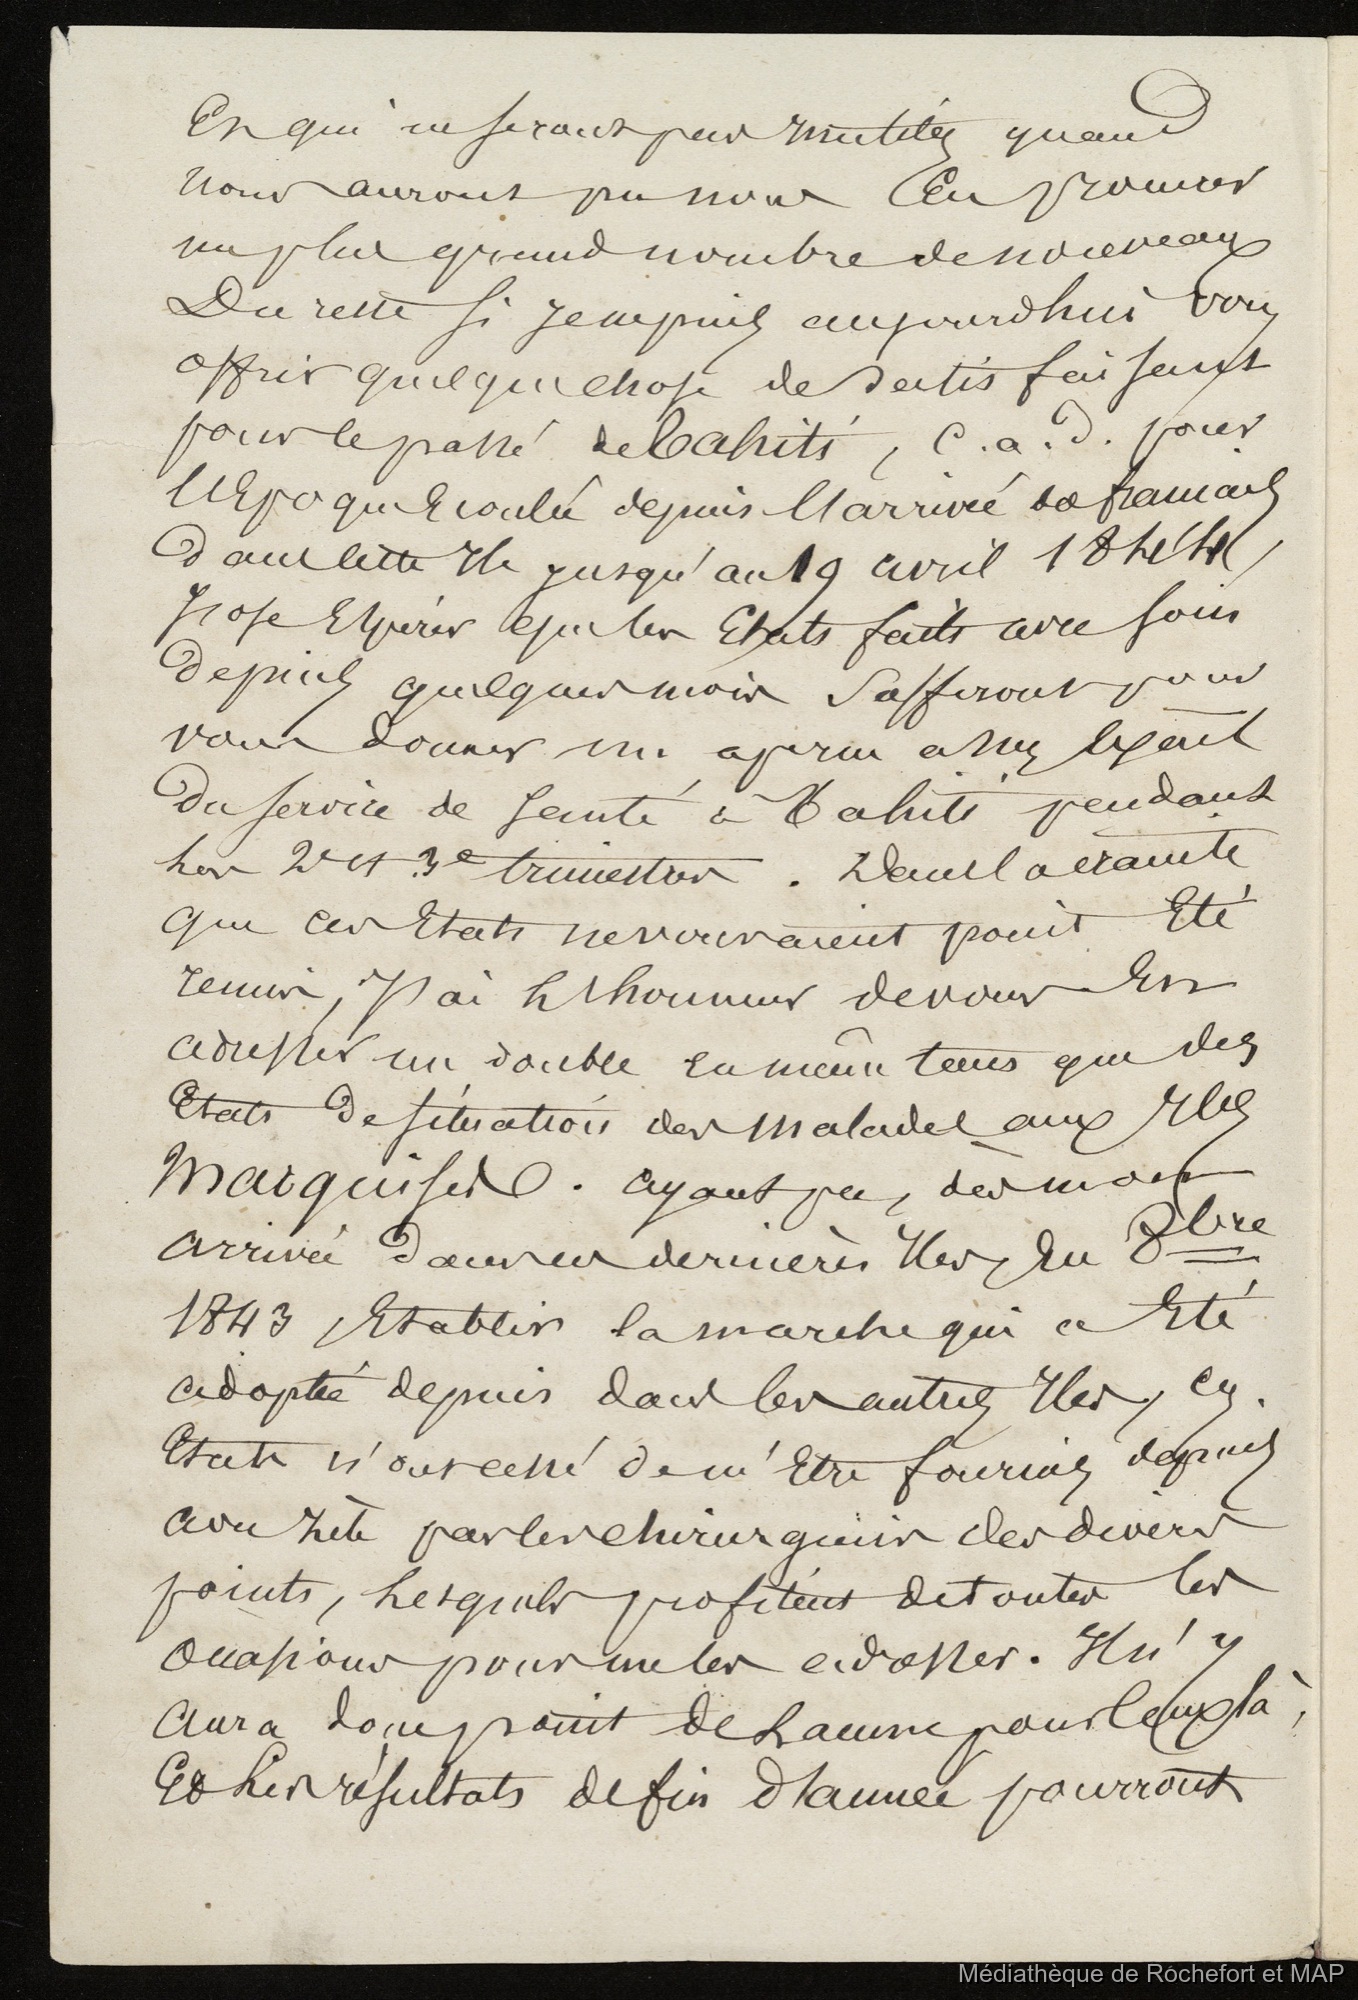 Et qui ne seront pas inutiles quand
nous aurons pu nous en procurer
un plus grand nombre de nouveaux
Du reste si je ne puis aujourdhui vous
offrir quelque chose de satisfaisant
pour le passé de Tahiti, c.a.d. pour
l'Epoque Ecoulée depuis l'arrivée des français
dans cette Ile jusqu'au 19 avril 1844,
j'ose Espérer que les Etats faits avec soin
depuis quelques mois suffiront pour
vous donner un apercu assez exact
du service de santé à Tahiti pendant
les 2e et 3e trimestres. Dans la crainte
que ces Etats ne vous aient point Eté
remis, j'ai l'honneur de vous En
adresser un double en même tems que des
Etats de situation des malades aux Iles
Marquises. ayant pu, dès mon
arrivée dans ces dernières Iles, En 8bre
1843, Etablir la marche qui a Eté
adoptée depuis dans les autres Iles, ces
Etats n'ont cessé de m'Etre fournis depuis
avec zèle par les chirurgiens des divers
points, lesquels profitent de toutes les
occasions pour me les adresser. Il n'y
aura donc point de lacune pour ceux là,
Et les résultats de fin d'année pourront
Médiathèque de Rochefort et MAP